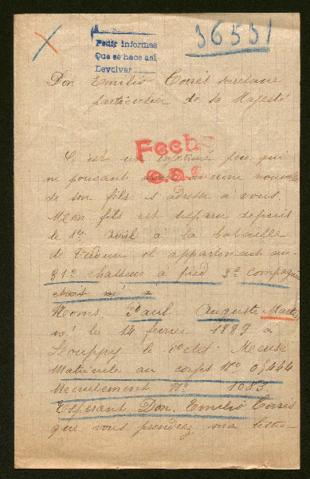 36551
Pedir informes
Que se hace así
Devolver
Don Emilio Torrès secrétaire
particulier de sa Majesté
Fecho
C'est un père qui
ne pouvant avoir aucune nouvelle
de son fils s'adresse à vous.
Mon fils est disparu depuis
le 1er avril à la bataille
de Verdun il appartenait au
31e chasseur à pied 3e compagnie
Noms, Paul Auguste
né le 14 février 1887 à
Louppy le Meuse
Matricule au corps No 08444
Recrutement No 1033
Espérant Don. Emilio Torrès
que vous prendrez ma lettre